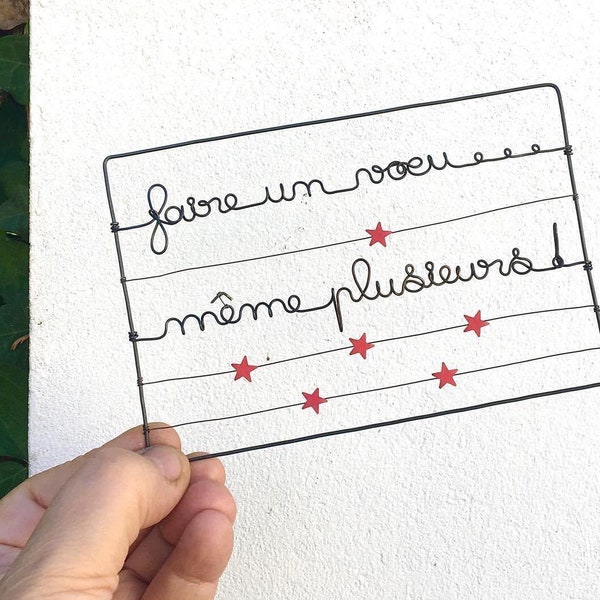 faire un voeu...
même plusieurs !